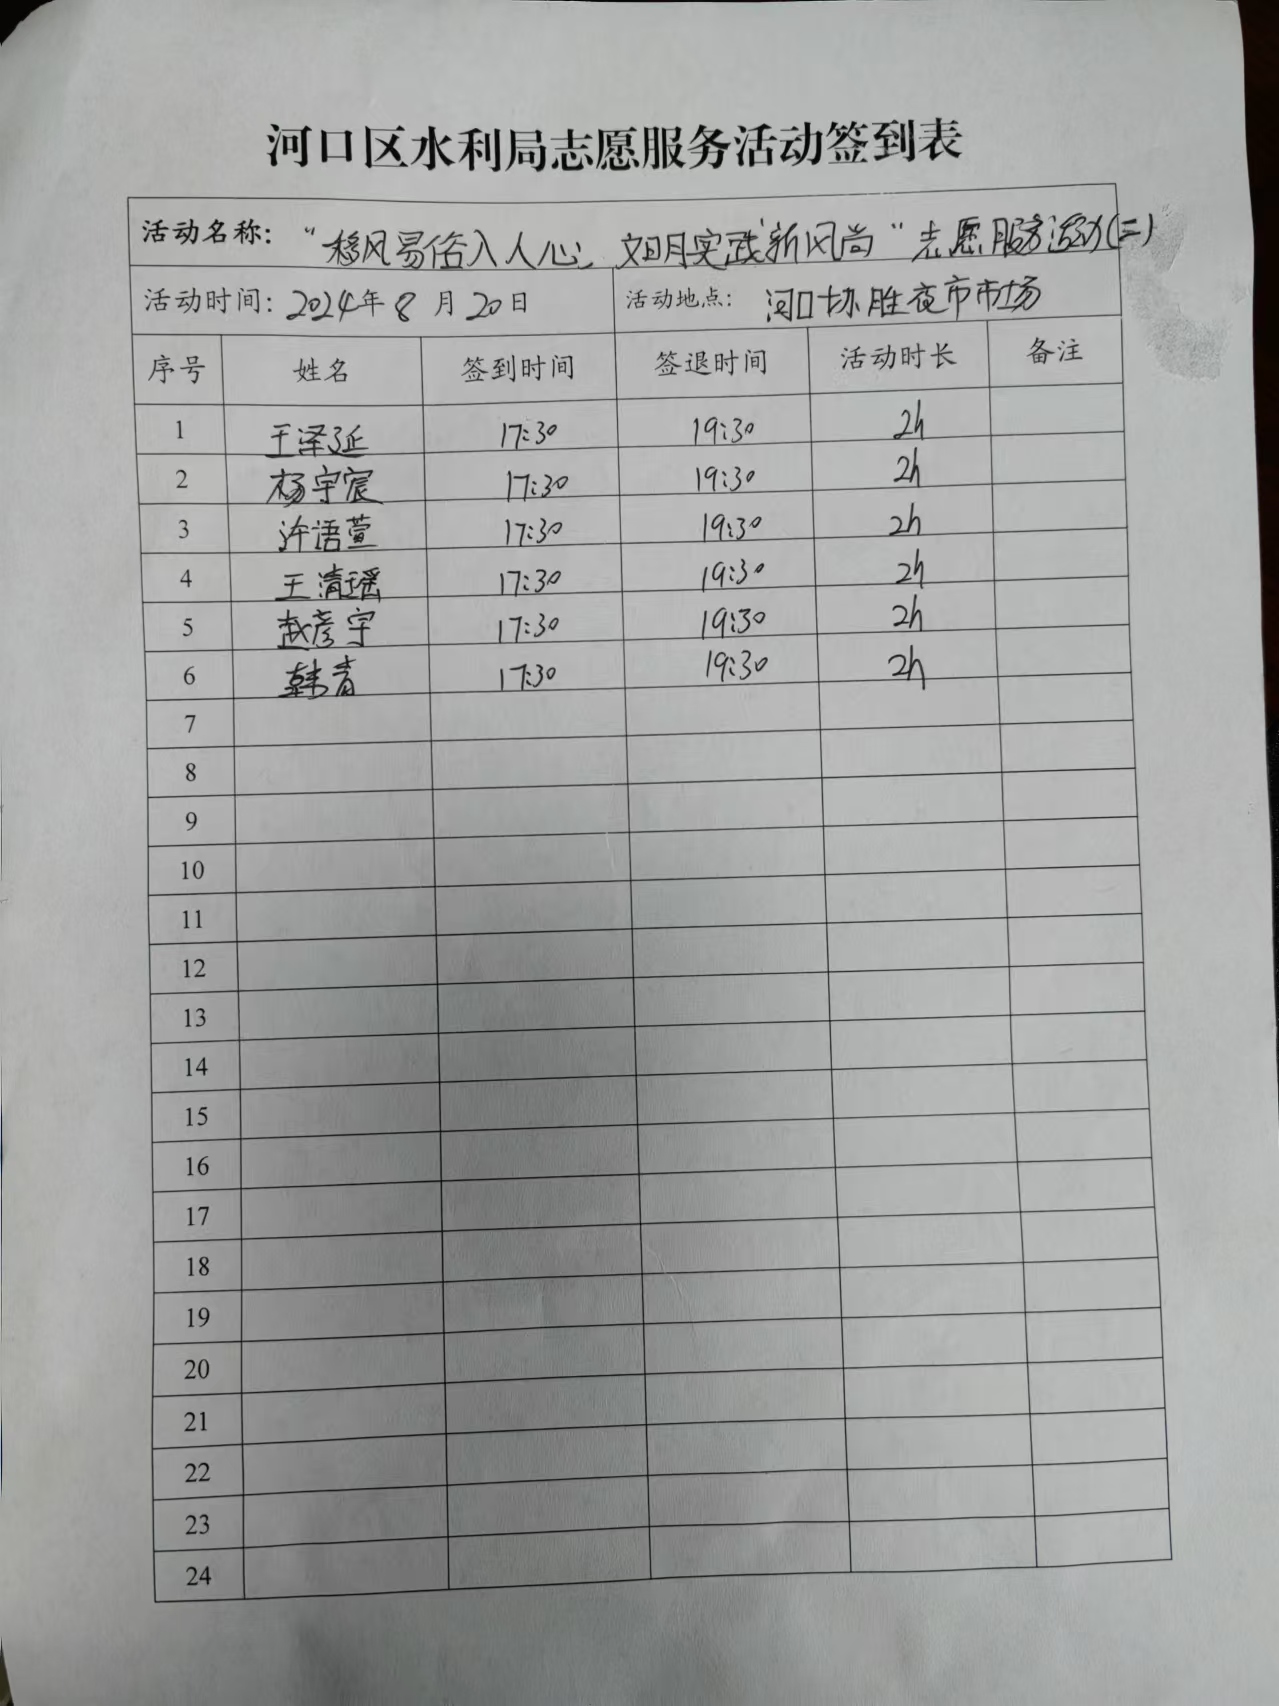 河口区水利局志愿服务活动签到表
活动名称：“移风易俗入人心，文明实践新风尚”志愿服务活动（二）
活动时间：2024年8月20日 活动地点：河口协胜夜市市场
序号 姓名 签到时间 签退时间 活动时长 备注
1 王泽延 17:30 19:30 2h
2 杨宇宸 17:30 19:30 2h
3 许语萱 17:30 19:30 2h
4 王清瑶 17:30 19:30 2h
5 赵彦宇 17:30 19:30 2h
6 韩青 17:30 19:30 2h
7
8
9
10
11
12
13
14
15
16
17
18
19
20
21
22
23
24